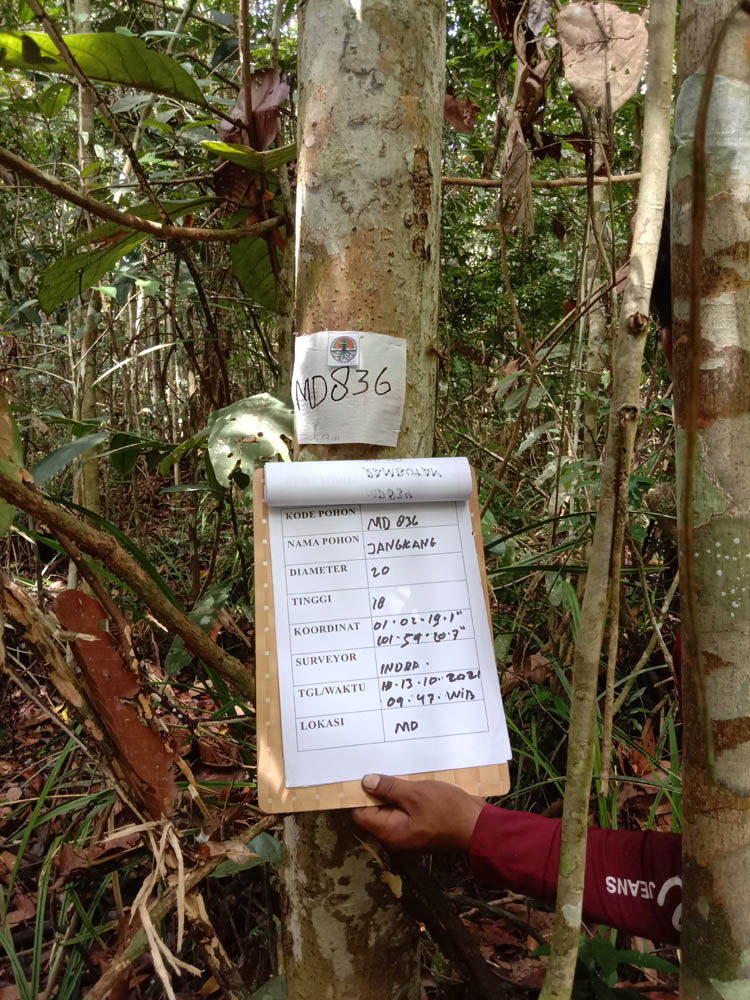 MD836
KODE POHON MD 836
NAMA POHON JANGKANG
DIAMETER 20
TINGGI 18
KOORDINAT 01.02.19.1"
101.59.20.7"
SURVEYOR INDRA.
TGL/WAKTU 13.10.2021
09.47.WIB
LOKASI MD
JEANS